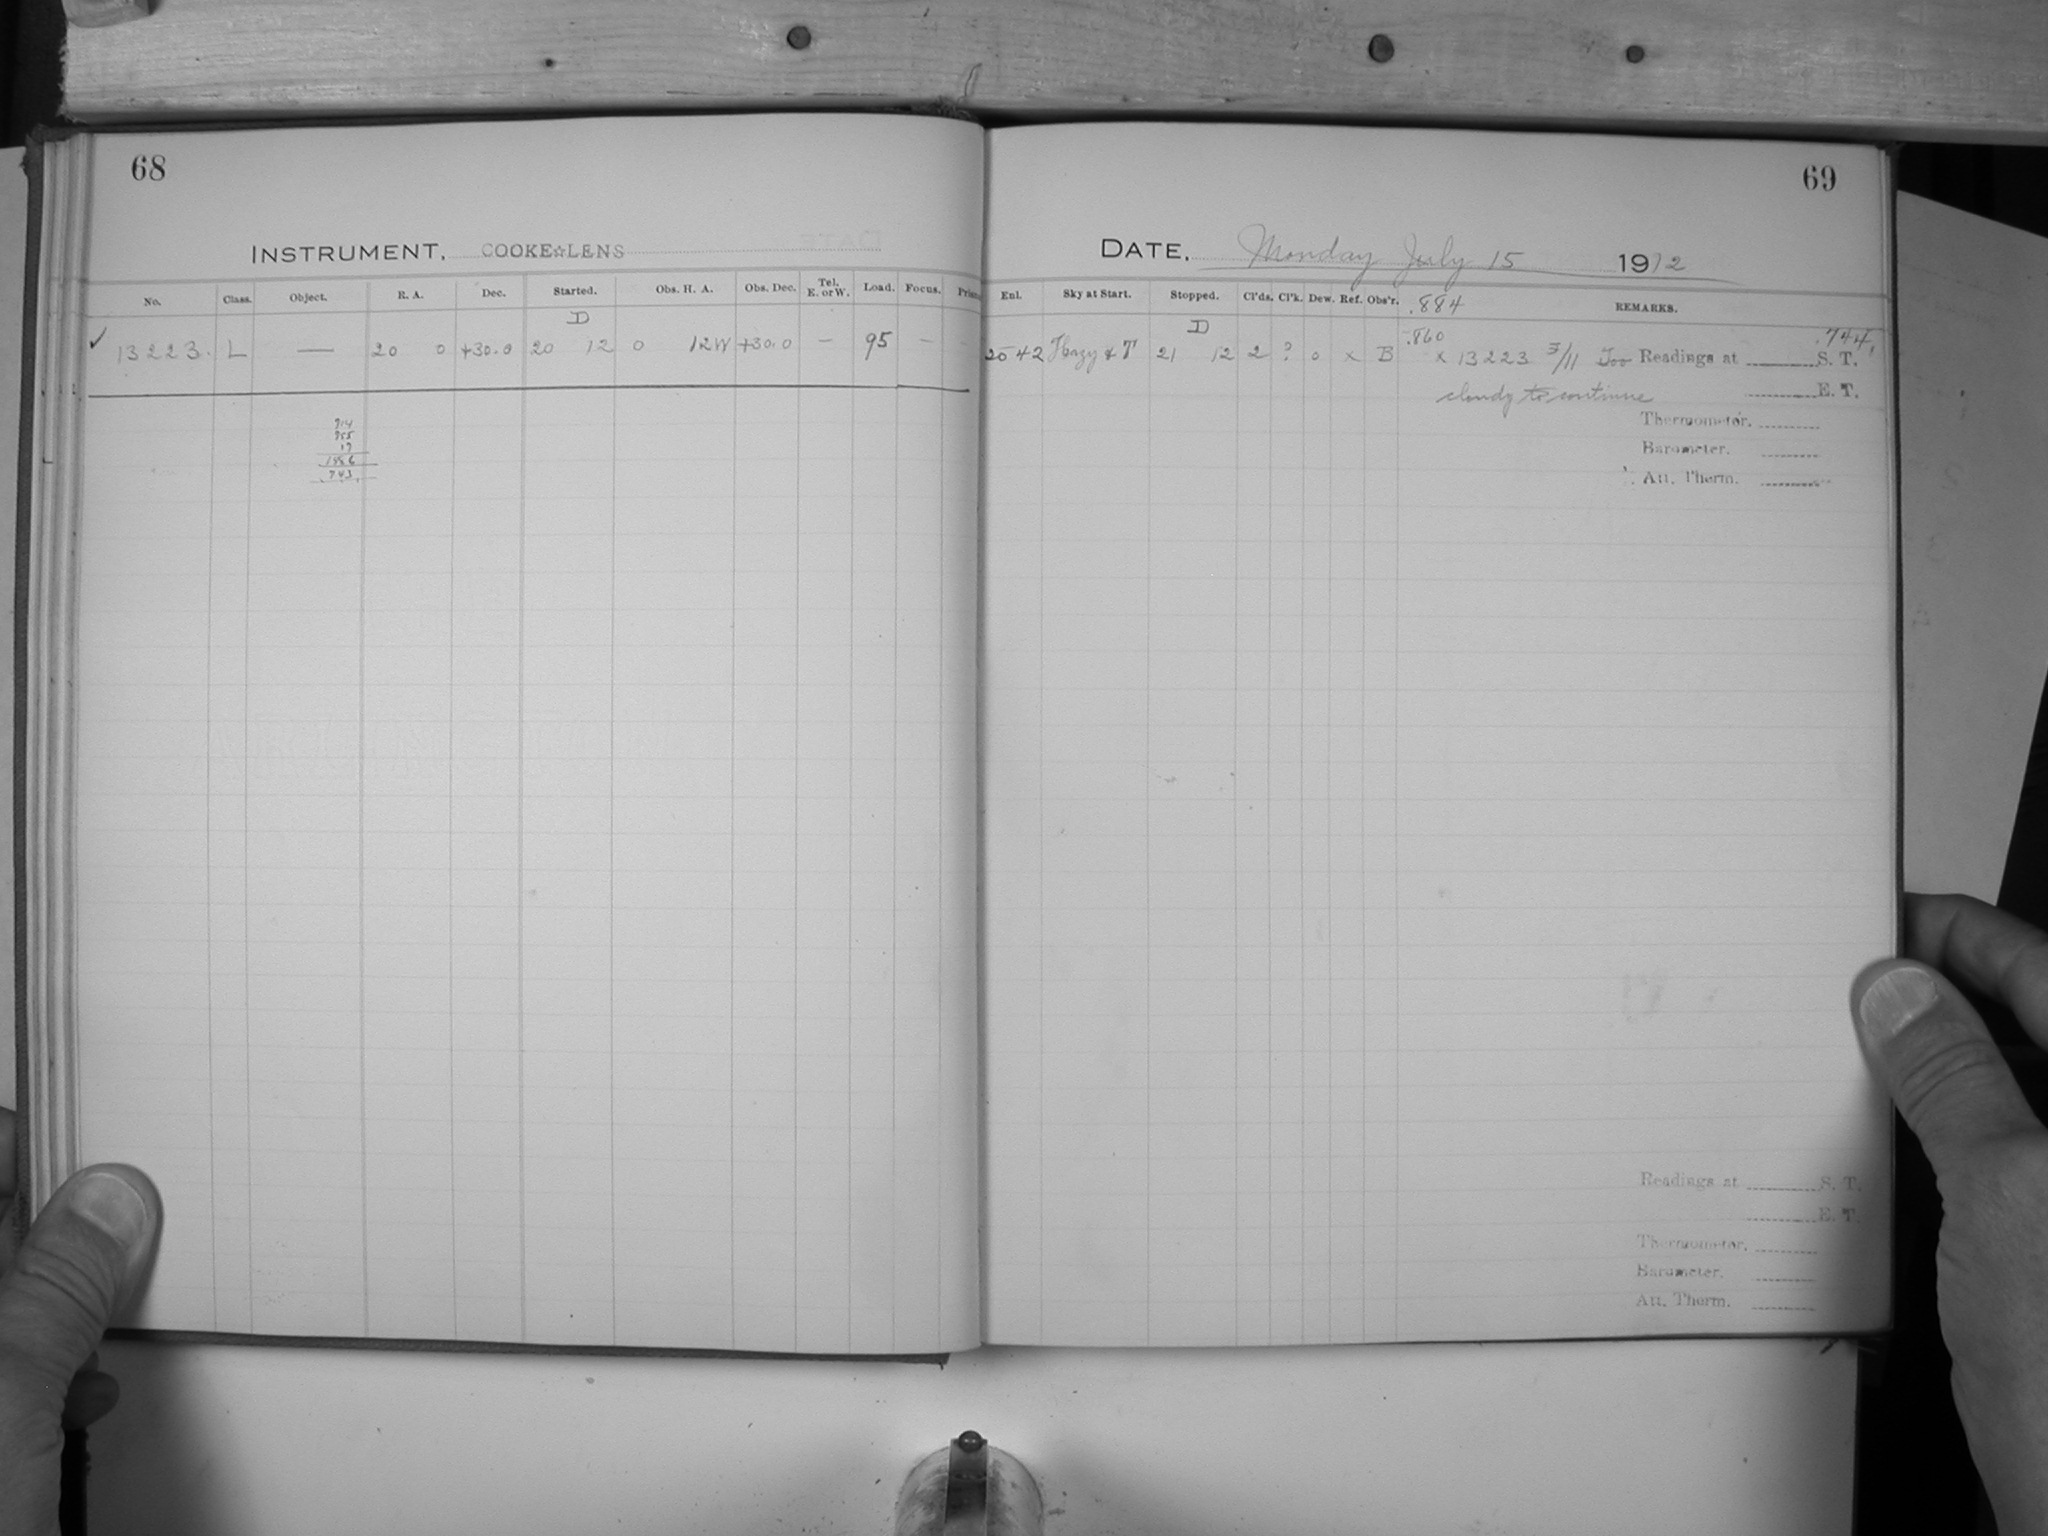 68
INSTRUMENT, COOKE☆LENS
No. Class. Object. R. A. Dec. Started. Obs. H. A. Obs. Dec. Tel. E. or W. Load. Focus. Prism
D
✓ 13223. L — 20 0 +30.0 20 12 0 12W +30.0 — 95 — -
914
955
17
1886
943
69
DATE, Monday July 15 1912
Enl. Sky at Start. Stopped. Cl'ds. Cl'k. Dew. Ref. Obs'r. .884 REMARKS.
D .860 .744
2542 Hazy & T 21 12 2 ? 0 x B x 13223 3/11 Too Readings at S. T.
cloudy to continue E. T.
Thermometer.
Barometer.
Att. Therm.
Readings at S. T.
E. T.
Thermometer.
Barometer.
Att. Therm.